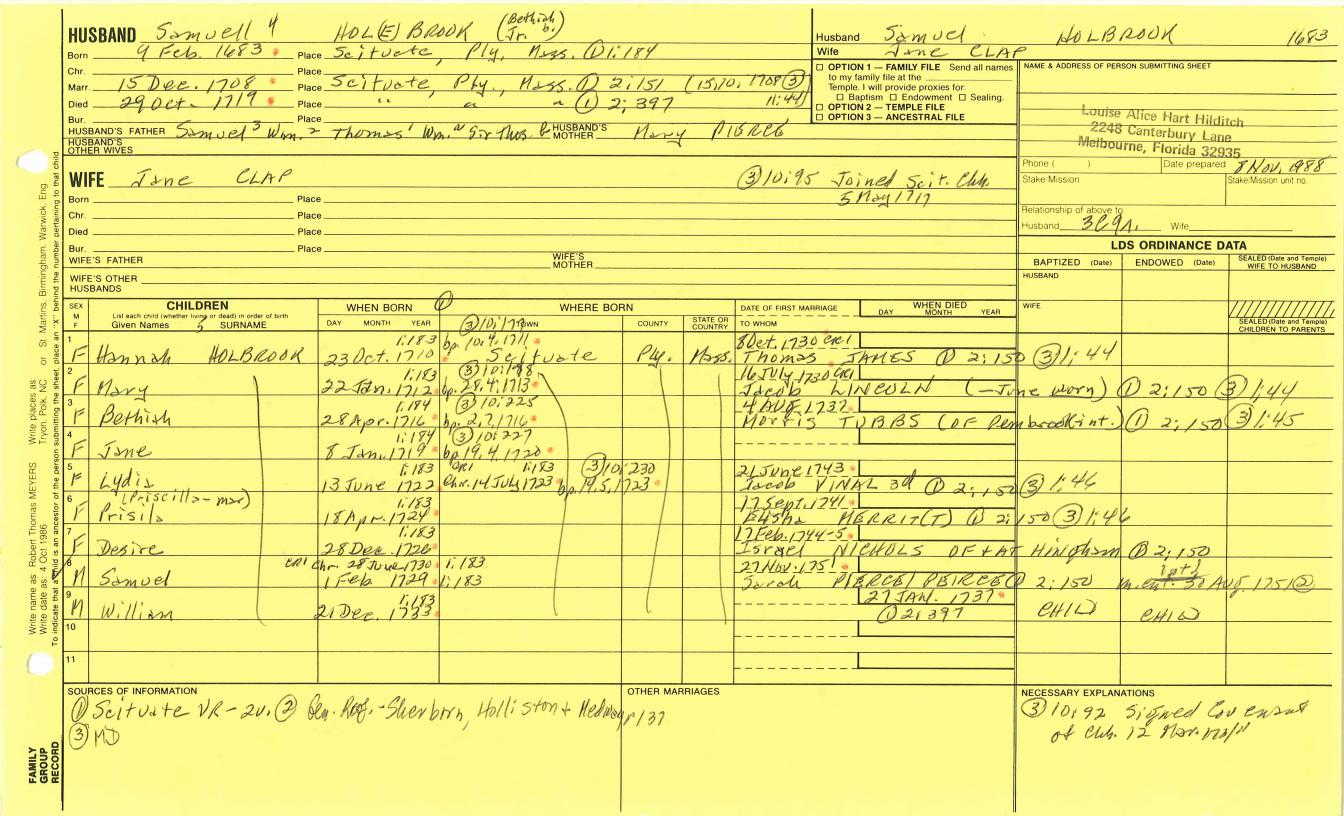 HUSBAND Samuell 4 HOL(E)BROOK (Bethiah Jr. b.)
Born 9 Feb. 1683 Place Scituate, Ply, Mass. ① 1:184
Chr. Place
Marr 15 Dec. 1708 Place Scituate, Ply., Mass. ① 2:151 (15,10, 1708 ③ 11:44)
Died 29 Oct. 1719 Place " " " ① 2:397
Bur. Place
HUSBAND'S FATHER Samuel³ Wm.² Thomas¹ Wm. Sir Thos. HUSBAND'S MOTHER Mary PIERCE
HUSBAND'S OTHER WIVES
WIFE Jane CLAP ③ 10:95 Joined Scit. Chh.
5 May 1717
Born Place
Chr. Place
Died Place
Bur. Place
WIFE'S FATHER WIFE'S MOTHER
WIFE'S OTHER HUSBANDS
Husband Samuel HOLBROOK 1683
Wife Jane CLAP
☐ OPTION 1 — FAMILY FILE Send all names
to my family file at the
Temple. I will provide proxies for:
☐ Baptism ☐ Endowment ☐ Sealing.
☐ OPTION 2 — TEMPLE FILE
☐ OPTION 3 — ANCESTRAL FILE
NAME & ADDRESS OF PERSON SUBMITTING SHEET
Louise Alice Hart Hilditch
2248 Canterbury Lane
Melbourne, Florida 32935
Phone ( ) Date prepared 8 Nov. 1988
Stake/Mission Stake/Mission unit no.
Relationship of above to
Husband 3C9r. Wife
LDS ORDINANCE DATA
BAPTIZED (Date) ENDOWED (Date) SEALED (Date and Temple) WIFE TO HUSBAND
HUSBAND
WIFE
SEALED (Date and Temple) CHILDREN TO PARENTS
SEX M F CHILDREN WHEN BORN ① WHERE BORN DATE OF FIRST MARRIAGE WHEN DIED
List each child (whether living or dead) in order of birth
Given Names SURNAME DAY MONTH YEAR TOWN COUNTY STATE OR COUNTRY TO WHOM DAY MONTH YEAR
1 1:183 bp. 10.4.1711 8 Oct. 1730 CR1
F Hannah HOLBROOK 23 Oct. 1710 Scituate Ply. Mass. Thomas JAMES ① 2:150 ③ 1:44
2 1:183 ③ 10:188 16 July 1730 CR1
F Mary 22 Jan. 1712 bp. 28.4.1713 Jacob LINCOLN (—June worn) ① 2:150 ③ 1:44
3 1:184 ③ 10:225 4 AUG. 1737
F Bethiah 28 Apr. 1716 bp. 2.7.1716 Morris TUBBS (OF Pembrook int.) ① 2:150 ③ 1:45
4 1:184 ③ 10:227
F Jane 8 Jan. 1719 bp 19.4.1720
5 1:183 CR1 1:183 ③ 10:230 21 June 1743
F Lydia 13 June 1722 Chr. 14 July 1723 bp. 19.5.1723 Jacob VINAL 3d ① 2:150 ③ 1:46
6 (Priscilla-mar) 1:183 17 Sept. 1741
F Prisila 18 Apr. 1724 Elisha MERRIT(T) ① 2:150 ③ 1:46
7 1:183 17 Feb. 1744-5
F Desire 28 Dec. 1726 Israel NICHOLS OF + AT Hingham ① 2:150
8 CR1 Chr. 28 June 1730 1:183 27 Nov. 1751
M Samuel 1 Feb 1729 1:183 Sarah PIERCE/PEIRCE ① 2:150 m. int. 30 AUG. 1751 ②
9 1:183 27 JAN. 1737
M William 21 Dec. 1733 ① 2:397 CHILD CHILD
10
11
SOURCES OF INFORMATION
① Scituate VR-2v. ② Gen. Reg.-Sherborn, Holliston + Medway p 137
③ MD
OTHER MARRIAGES
NECESSARY EXPLANATIONS
③ 10:92 Signed Covenant
of Chh. 12 Mar.
Write name as Robert Thomas MEYERS Write places as Tryon, Polk, NC or St. Martins, Birmingham, Warwick, Eng.
Write date as: 4 Oct 1986
To indicate that a child is an ancestor of the person submitting the sheet, place an "X" behind the number pertaining to that child
FAMILY GROUP RECORD